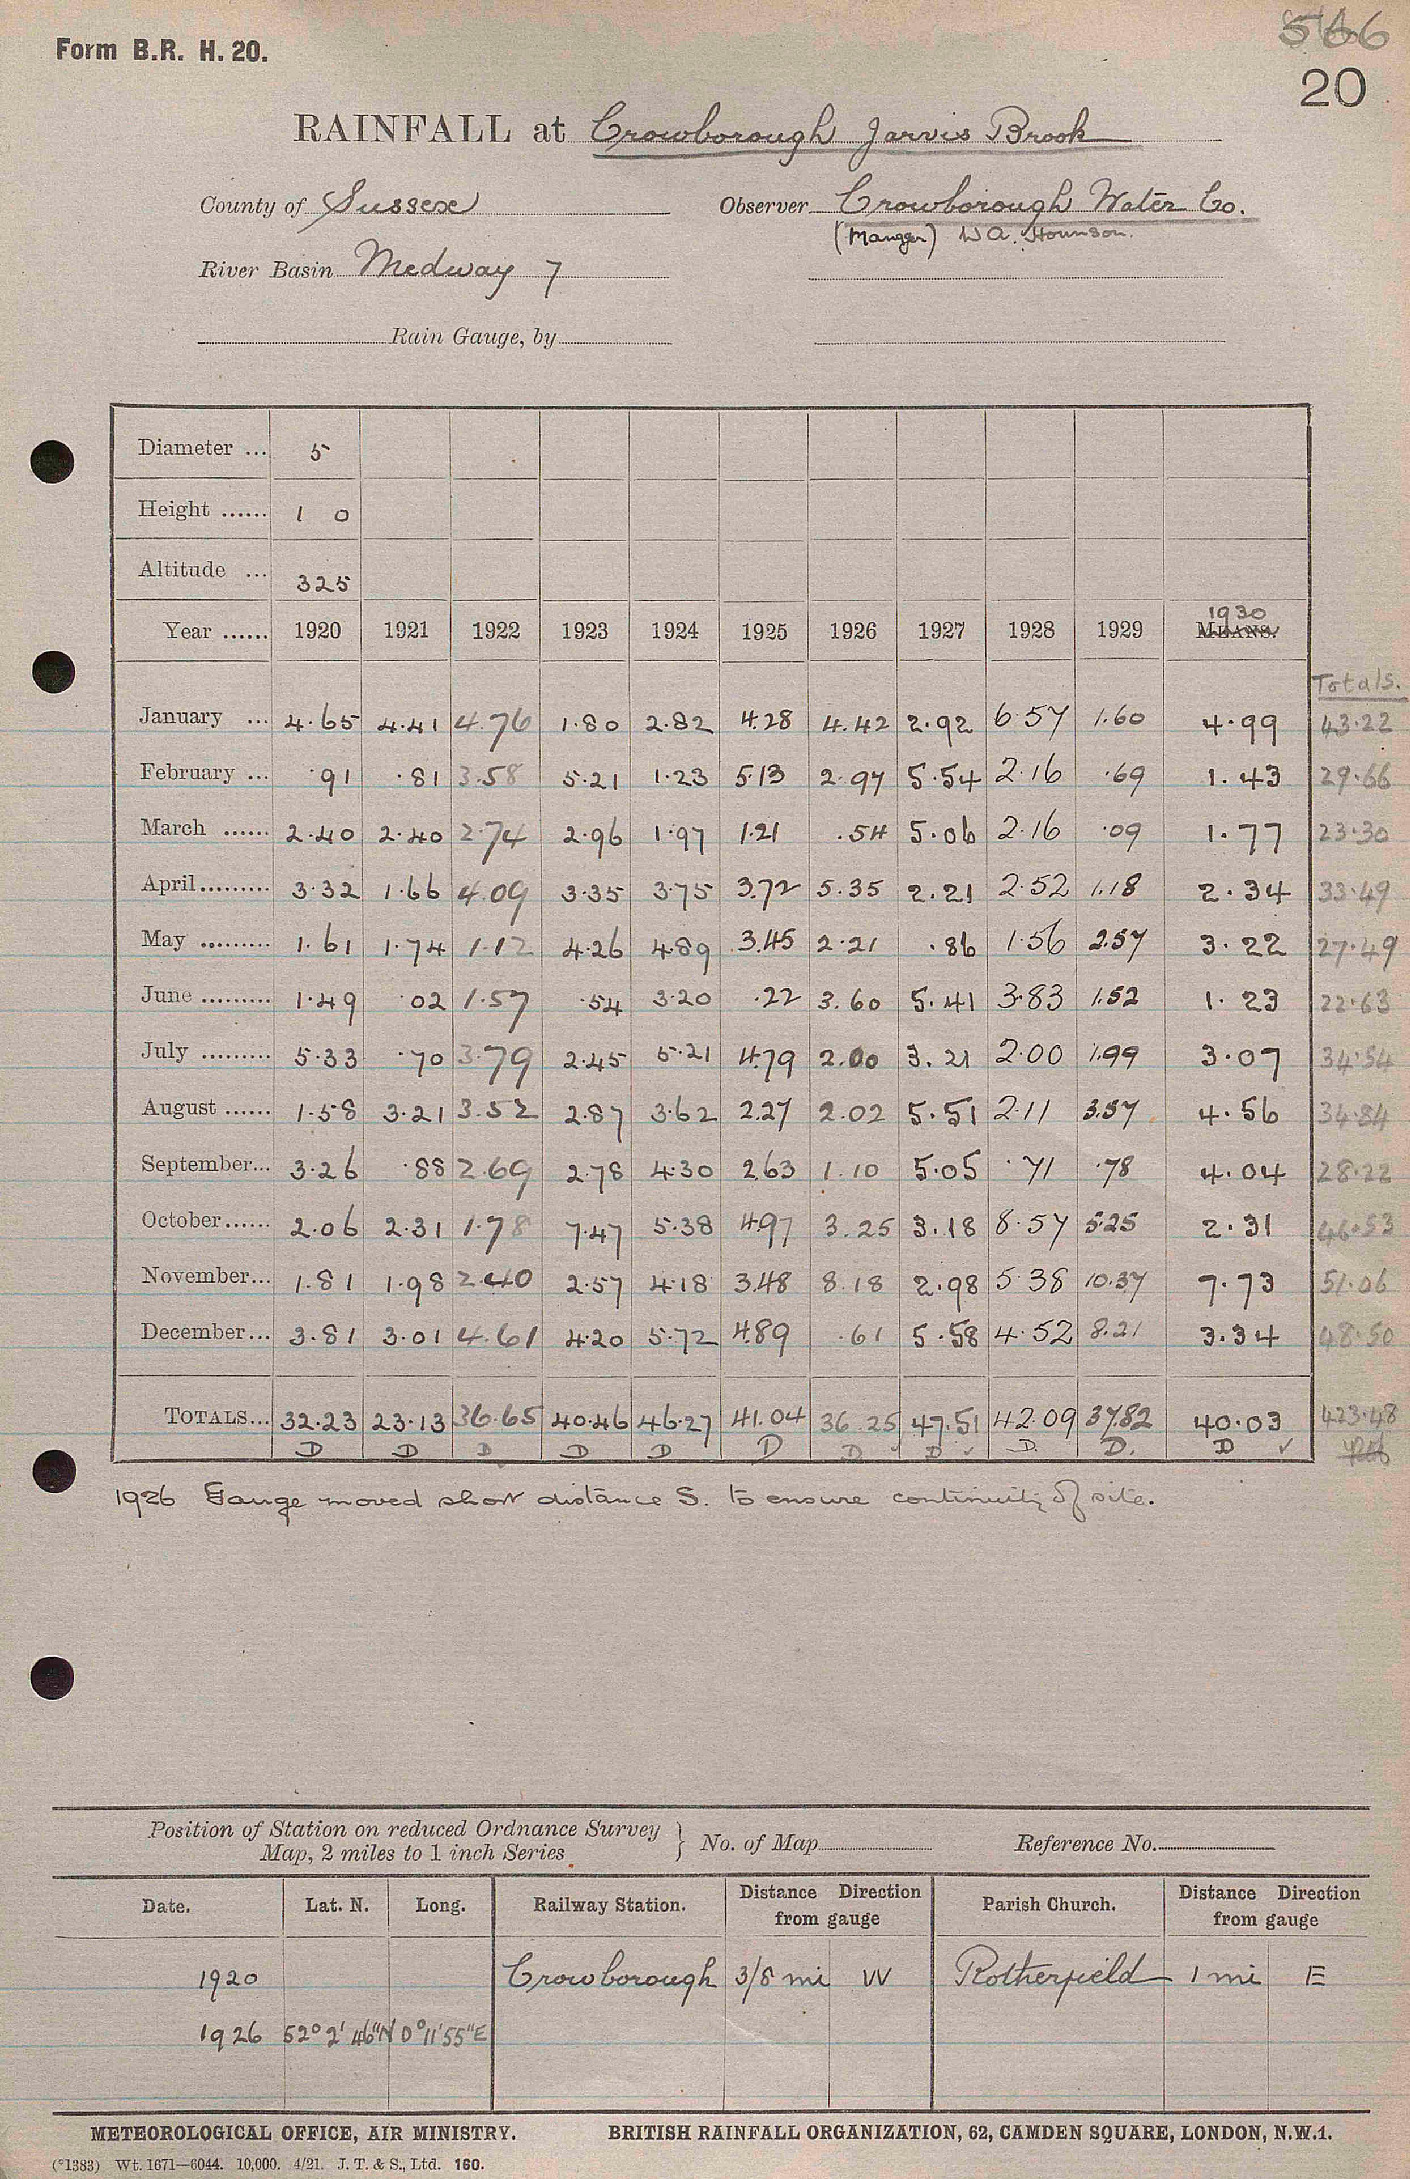 Form B.R. H. 20.
20
RAINFALL at Crowborough Jarvis Brook
County of Sussex Observer Crowborough Water Co.
(Manager) W A. Hounson.
River Basin Medway 7
Rain Gauge, by
Diameter ... 5
Height ...... 1 0
Altitude ... 325
1930
Year ...... 1920 1921 1922 1923 1924 1925 1926 1927 1928 1929 MEANS.
Totals.
January ... 4.65 4.41 4.76 1.80 2.82 4.28 4.42 2.92 6.57 1.60 4.99 43.22
February ... .91 .81 3.58 5.21 1.23 5.13 2.97 5.54 2.16 .69 1.43 29.66
March ...... 2.40 2.40 2.74 2.96 1.97 1.21 .54 5.06 2.16 .09 1.77 23.30
April......... 3.32 1.66 4.09 3.35 3.75 3.72 5.35 2.21 2.52 1.18 2.34 33.49
May ......... 1.61 1.74 1.12 4.26 4.89 3.45 2.21 .86 1.56 2.57 3.22 27.49
June ......... 1.49 .02 1.57 .54 3.20 .22 3.60 5.41 3.83 1.52 1.23 22.63
July ......... 5.33 .70 3.79 2.45 5.21 4.79 2.00 3.21 2.00 1.99 3.07 34.54
August ...... 1.58 3.21 3.52 2.87 3.62 2.27 2.02 5.51 2.11 3.57 4.56 34.84
September... 3.26 .88 2.69 2.78 4.30 2.63 1.10 5.05 .71 .78 4.04 28.22
October...... 2.06 2.31 1.78 7.47 5.38 4.97 3.25 3.18 8.57 5.25 2.31 46.53
November... 1.81 1.98 2.40 2.57 4.18 3.48 8.18 2.98 5.38 10.37 7.73 51.06
December... 3.81 3.01 4.61 4.20 5.72 4.89 .61 5.58 4.52 8.21 3.34 48.50
TOTALS... 32.23 23.13 36.65 40.46 46.27 41.04 36.25 47.51 42.09 37.82 40.03 423.48
D D D D D D D ✓ D ✓ D. D. D ✓
1926 Gauge moved short distance S. to ensure continuity of site.
Position of Station on reduced Ordnance Survey
Map, 2 miles to 1 inch Series } No. of Map Reference No.
Date. Lat. N. Long. Railway Station. Distance Direction from gauge Parish Church. Distance Direction from gauge
1920 Crowborough 3/8 mi W Rotherfield 1 mi E
1926 52° 2' 46"N 0° 11' 55"E
METEOROLOGICAL OFFICE, AIR MINISTRY. BRITISH RAINFALL ORGANIZATION, 62, CAMDEN SQUARE, LONDON, N.W.1.
(*1383) Wt. 1671—6044. 10,000. 4/21. J. T. & S., Ltd. 160.